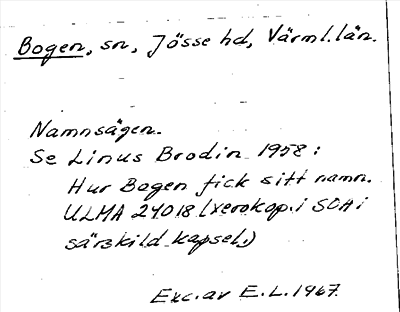 Bogen, sn, Jösse hd, Värml. län.
Namnsägen.
Se Linus Brodin 1958:
Hur Bogen fick sitt namn.
ULMA 24018 (xerokop. i SOA i
särskild kapsel.)
Exc. av E.L. 1967.